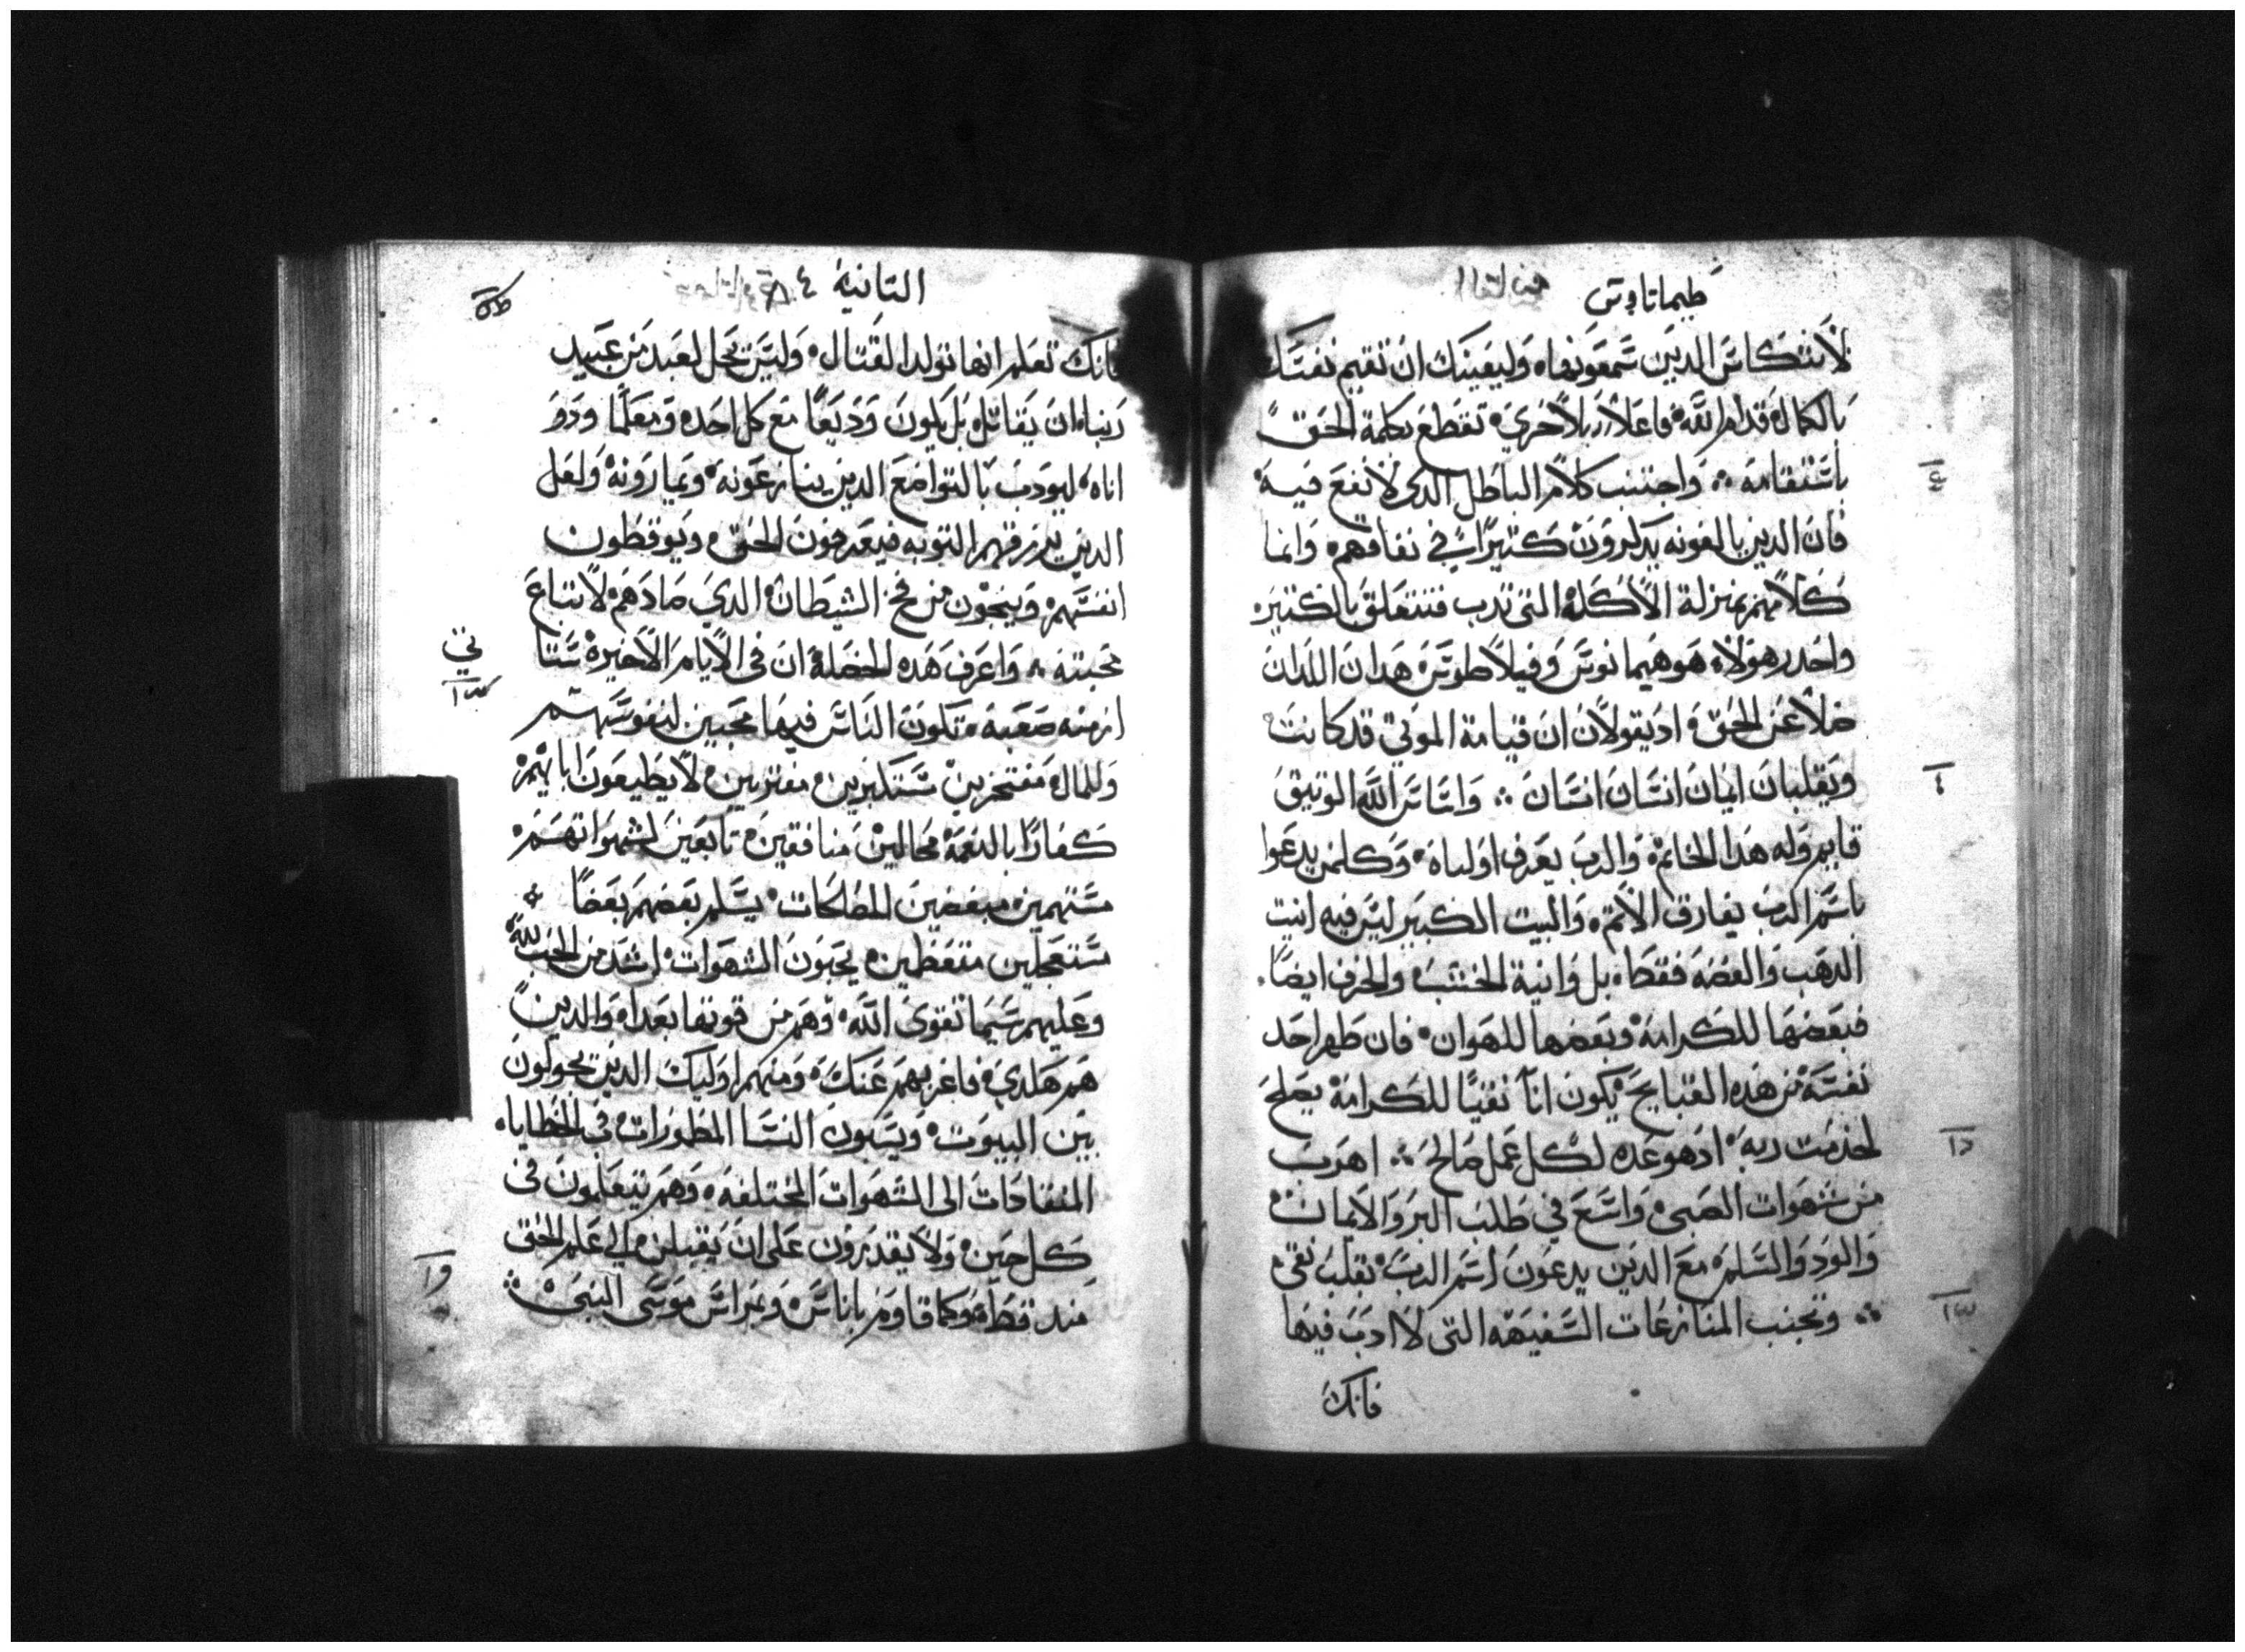 طيماتاوس
لأنتكاس الدين سمعونها وليعينك ان تقيم نفسك
بالكمال قدام الله فاعلاً بلا خزي تقطع بكلمة الحق
باستقامه ۞ واجتنب كلام الباطل الدى لا نفع فيه
فان الدين يالفونه يدكروون كتيراً في نفاقهم وانما
كلامهم بمنزلة الأكله التى تدب فتتعلق بالكتير
واحد هولاء هو هيمانوس وفيلاطوس هدان اللدان
ضلا عن الحق اد يقولان ان قيامة الموتي قد كانت
ويقلبان ايمان انسان انسان ۞ واساس الله الوتيق
قايم وله هدا الخاتم والرب يعرف اولياه وكلمن يدعوا
باسم الرب يفارق الأتم والبيت الكبير ليس فيه انيت
الدهب والفضه فقط بل وانية الخشب والخزف ايضاً
فبعضها للكرامة وبعضها للهوان فان طهر احد
نفسه من هده القبايح يكون اناً نقياً للكرامة يصلح
لخدمت ربه اد هو عده لكل عمل صالح ۞ اهرب
من شهوات الصبى واسع في طلب البر والايمان
والود والسلم مع الدين يدعون اسم الرب بقلب نقي
۞ وتجنب المنازعات السفيهه التى لا ادب فيها
فانك
التانية
فانك تعلم انها تولد القتال وليس يحل لعبد من عبيد
ربنا ان يقاتل بل يكون وديعاً مع كل احد ومعلماً ودو
اناه ليودب بالتواضع الدين ينازعونه ويمارونه ولعل
الدين يرزقهم التوبه فيعرفون الحق ويوقظون
انفسهم وينجون من فخ الشيطان الدي صادهم لاتباع
محبته ۞ واعرف هده الخصلة ان في الأيام الأخيره ستا
ازمنه صعبة تكون الناس فيها محبين لنفوسهم
وللمال مفتخرين متكبرين مفترين لا يطيعون ابايهم
كفارًا بالنعمة محالين منافقين تابعين لشهواتهم
متنهمين مبغضين للصلحات يسلم بعضهم بعضًا
متعجلين متعظمين يحبون الشهوات اشد من الحب لله
وعليهم سيما تقوى الله وهم من قوتها بعدا والدين
هم هلدي فاغربهم عنك ومنهم اوليك الدين يجولون
بين البيوت ويسبون النسا المطمورات في الخطايا
المنقادات الى الشهوات المختلفه وهم يتعلمون في
كل حين ولا يقدرون على ان يقبلن الي علم الحق
مند قط وكما قاوم ياناس ويمراس موسى النبى ۞